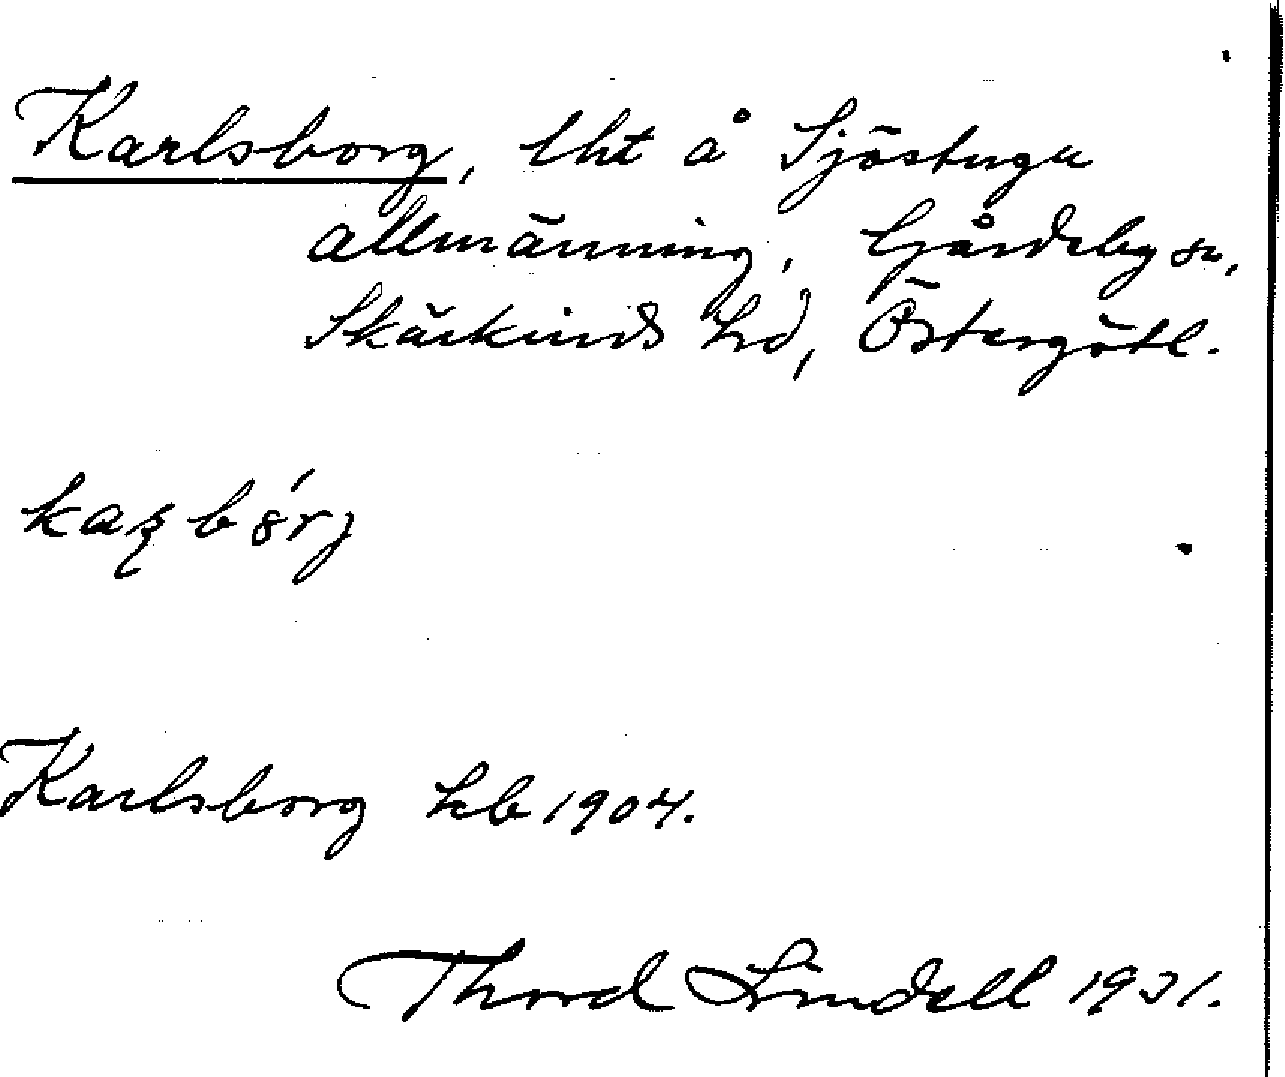 Karlsborg, lht å Sjöstuga
allmänning, Gårdeby sn,
Skärkinds hd, Östergötl.
Karlsborg kb 1904.
Thord Lindell 1931.